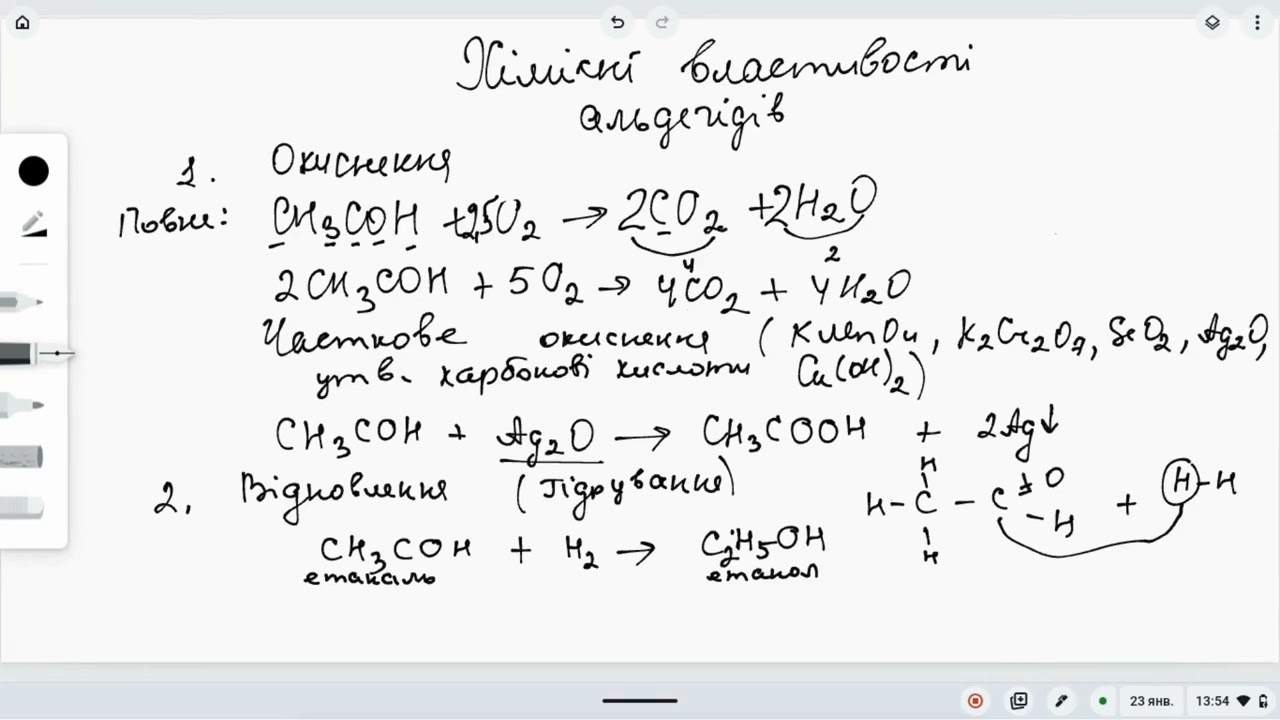 Хімічні властивості
альдегідів
1. Окиснення
Повне: CH3COH + 2,5O2 → 2CO2 + 2H2O
4 2
2CH3COH + 5O2 → 4CO2 + 4H2O
Часткове окиснення (KMnO4, K2Cr2O7, SeO2, Ag2O,
утв. карбонові кислоти Cu(OH)2)
CH3COH + Ag2O → CH3COOH + 2Ag↓
2. Відновлення (гідрування)
H
H - C - C = O - H + H - H
H
CH3COH + H2 → C2H5OH
етаналь етанол
23 янв. 13:54